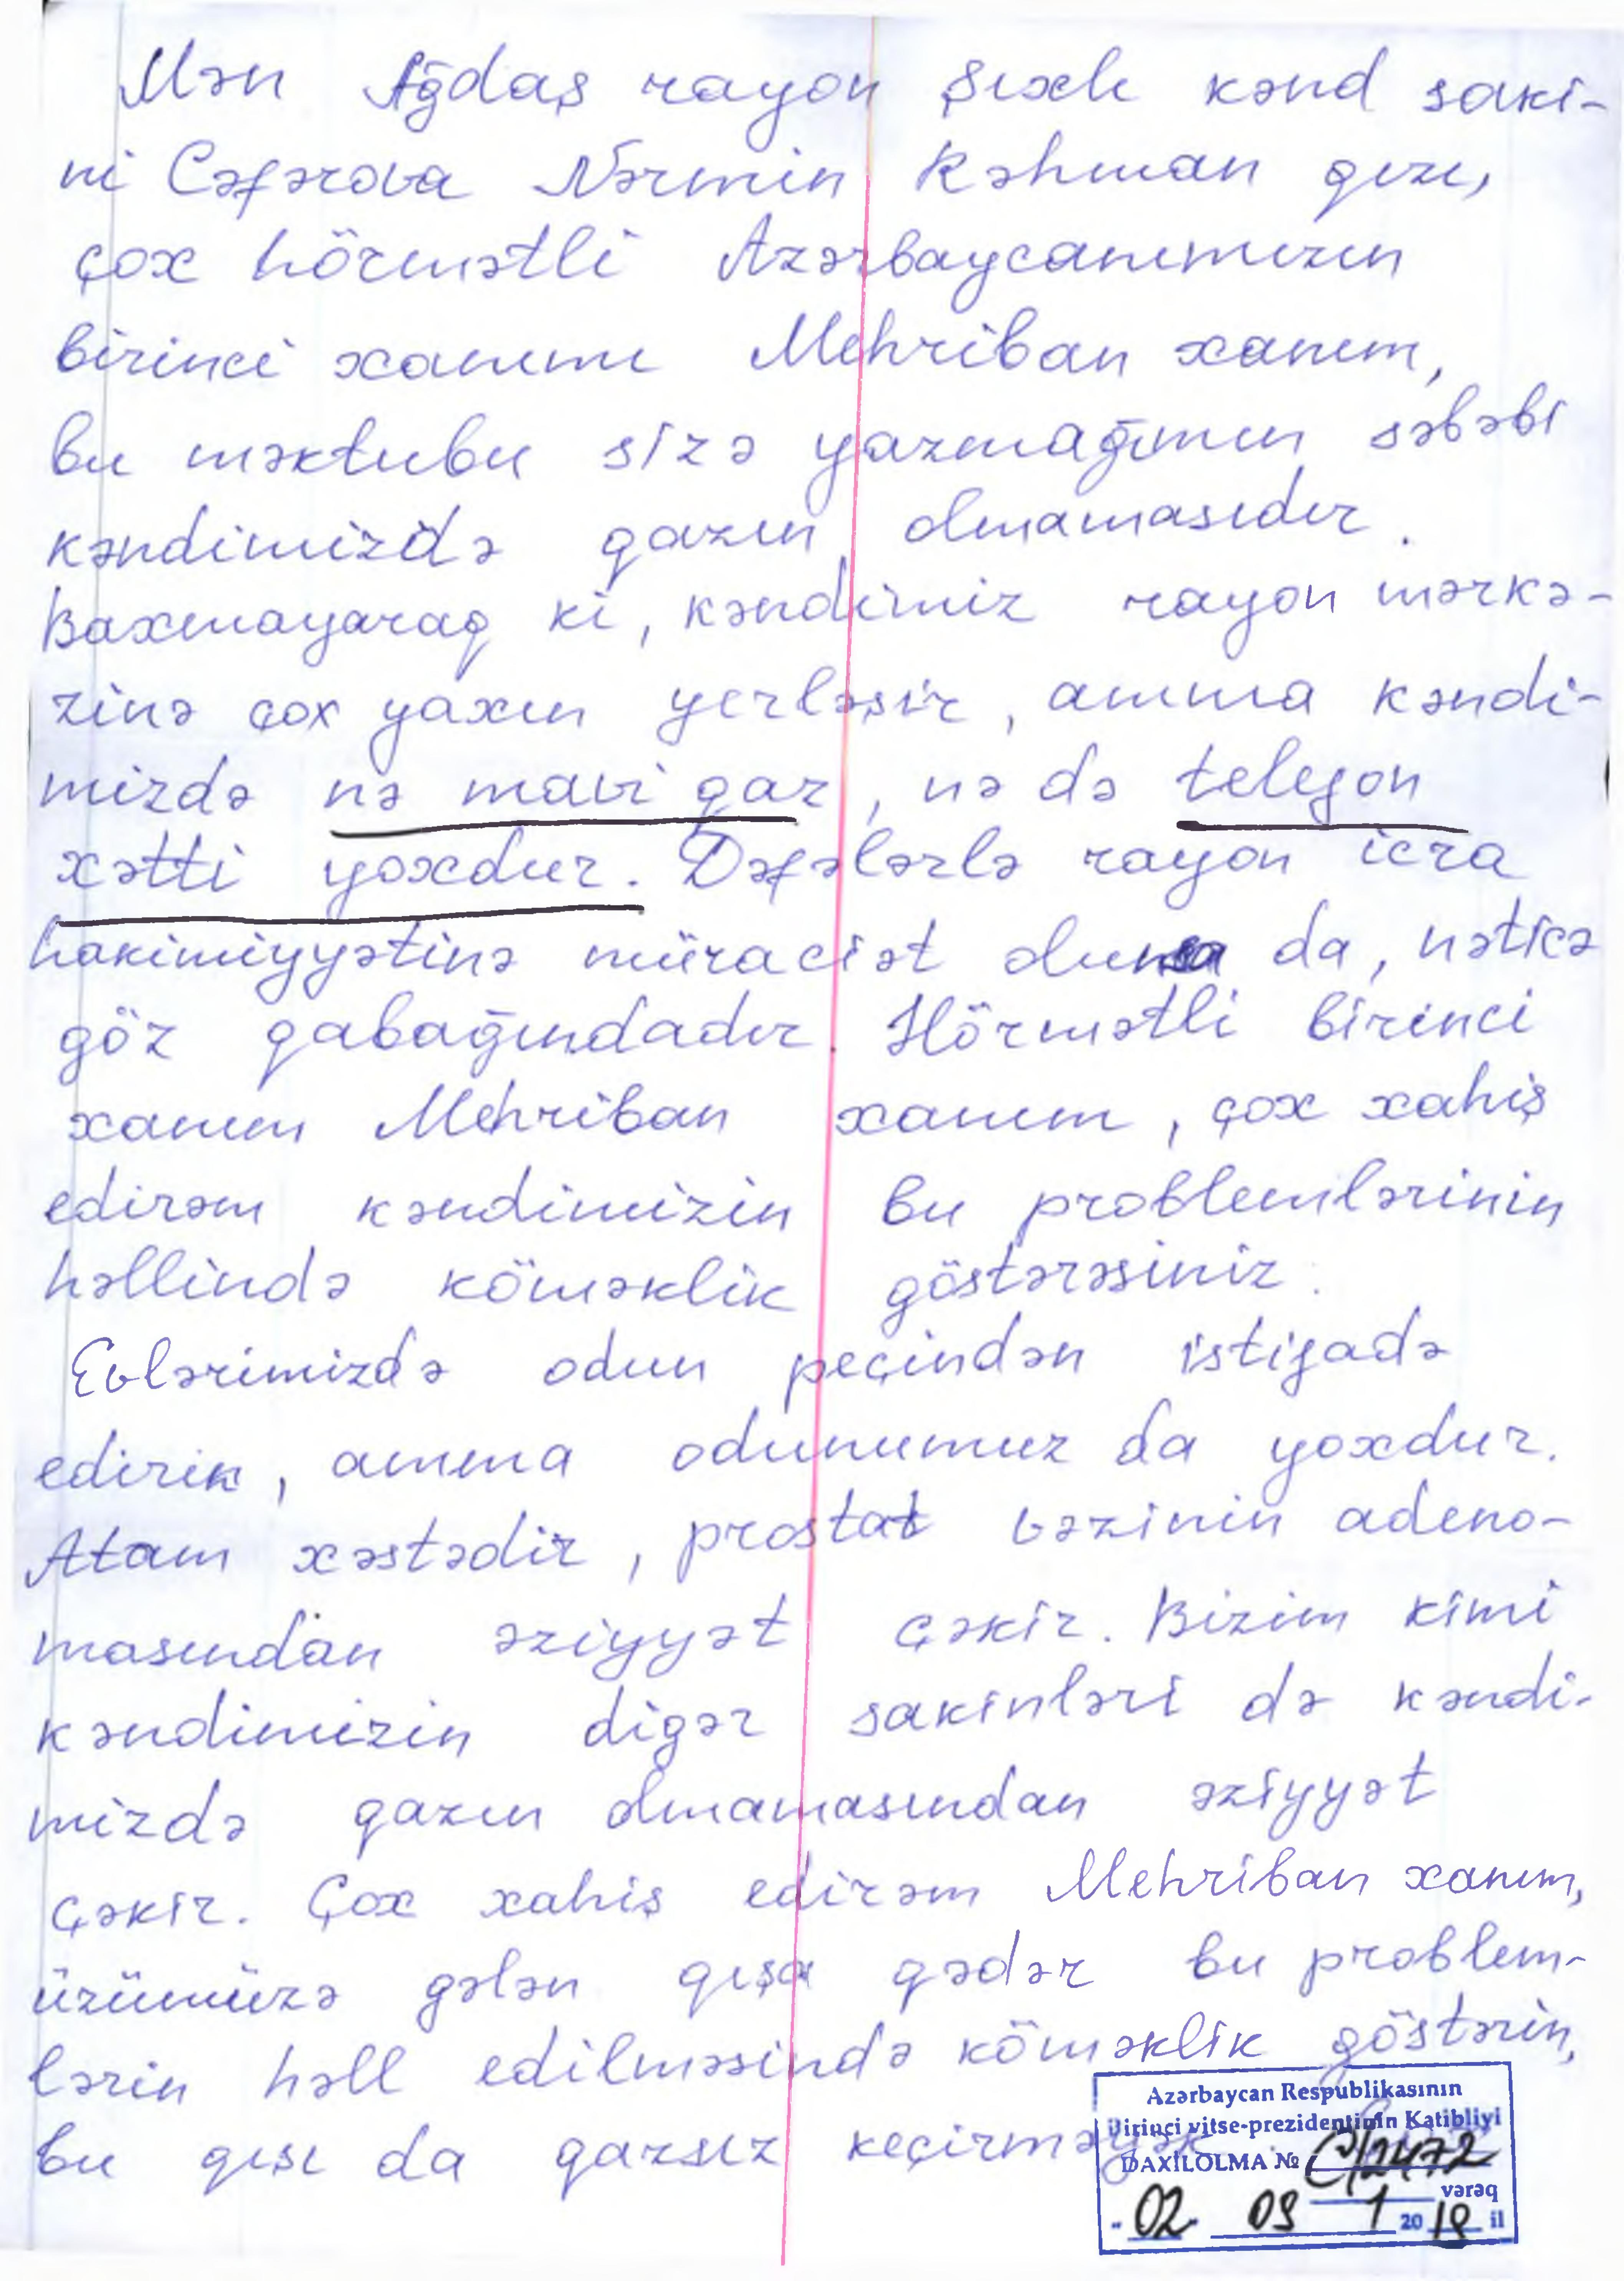 Mən Ağdaş rayon Şıxlı kənd saki-
ni Cəfərova Nərmin Rəhman qızı,
çox hörmətli Azərbaycanımızın
birinci xanımı Mehriban xanım,
bu məktubu sizə yazmağımın səbəbi
kəndimizdə qazın olmamasıdır.
Baxmayaraq ki, kəndimiz rayon mərkə-
zinə çox yaxın yerləşir, amma kəndi-
mizdə nə mavi qaz, nə də telefon
xətti yoxdur. Dəfələrlə rayon icra
hakimiyyətinə müraciət olunsa da, nəticə
göz qabağındadır. Hörmətli birinci
xanım Mehriban xanım, çox xahiş
edirəm kəndimizin bu problemlərinin
həllində köməklik göstərəsiniz.
Evlərimizdə odun peçindən istifadə
edirik, amma odunumuz da yoxdur.
Atam xəstədir, prostat vəzinin adeno-
masından əziyyət çəkir. Bizim kimi
kəndimizin digər sakinləri də kəndi-
mizdə qazın olmamasından əziyyət
çəkir. Çox xahiş edirəm Mehriban xanım,
üzümüzə gələn qışa qədər bu problem-
lərin həll edilməsində köməklik göstərin,
bu qışı da qazsız keçirməyək.
Azərbaycan Respublikasının
Birinci vitse-prezidentinin Katibliyi
DAXİLOLMA №
1 vərəq
"02" 09 2019 il